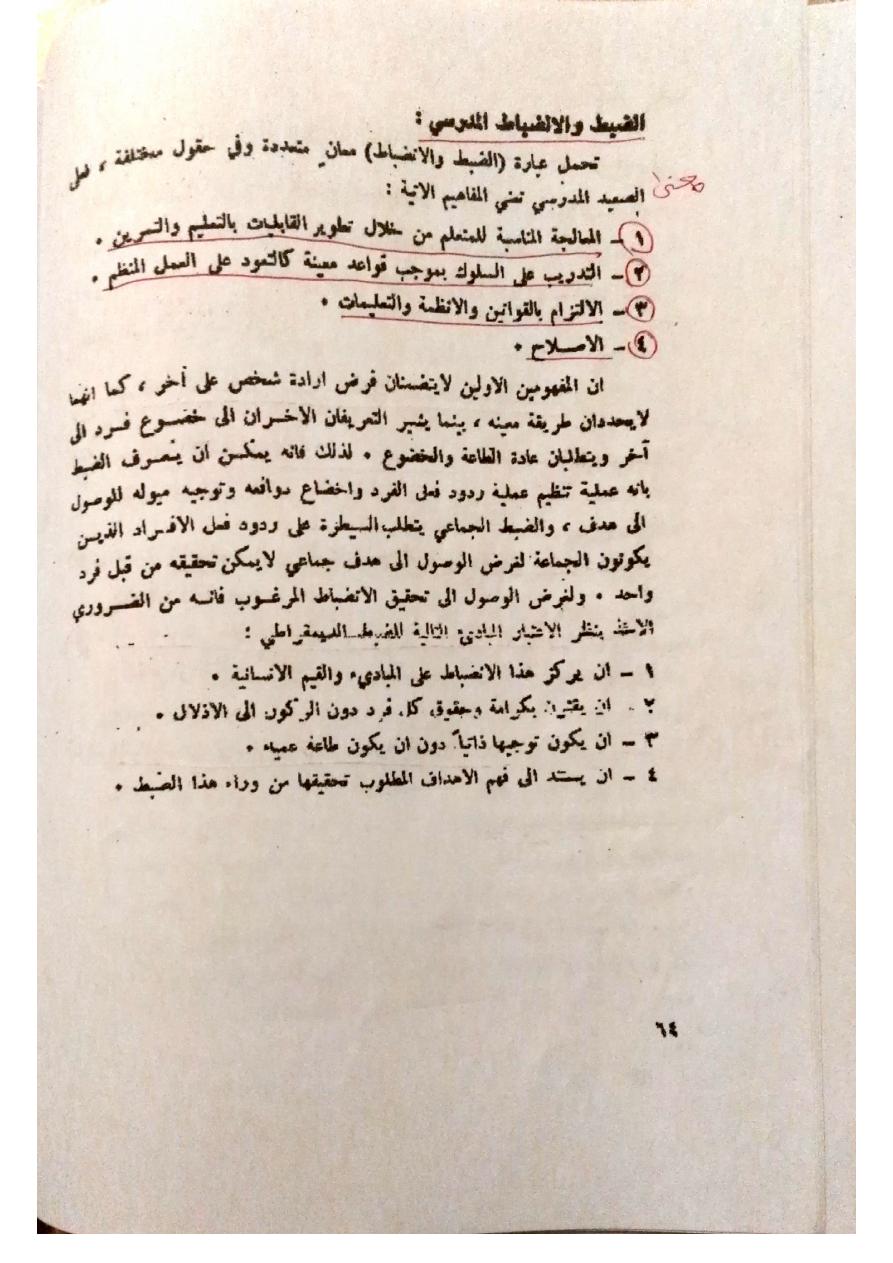 الضبط والانضباط المدرسي :
تحمل عبارة (الضبط والانضباط) معانٍ متعددة وفي حقول مختلفة ، فعلى
معنى
الصعيد المدرسي تعني المفاهيم الاتية :
١ – المعالجة المناسبة للمتعلم من خلال تطوير القابليات بالتعليم والتمرين .
٢ – التدريب على السلوك بموجب قواعد معينة كالتعود على العمل المنظم .
٣ – الالتزام بالقوانين والانظمة والتعليمات .
٤ – الاصلاح .
ان المفهومين الاولين لايتضمنان فرض ارادة شخص على آخر ، كما انهما
لايحددان طريقة معينه ، بينما يشير التعريفان الاخران الى خضوع فرد الى
آخر ويتطلبان عادة الطاعة والخضوع . لذلك فانه يمكن ان يتصرف الضبط
بانه عملية تنظيم عملية ردود فعلى الفرد واخضاع دوافعه وتوجيه ميوله للوصول
الى هدف ، والضبط الجماعي يتطلب السيطرة على ردود فعل الافراد الذين
يكوتون الجماعة لغرض الوصول الى هدف جماعي لايمكن تحقيقه من قبل فرد
واحد . ولغرض الوصول الى تحقيق الانضباط المرغوب فانه من الضروري
الاخذ بنظر الاعتبار المبادئ التالية للضبط الديمقراطي :
١ – ان يركز هذا الانضباط على المباديء والقيم الانسانية .
٢ – ان يقترن بكرامة وحقوق كل فرد دون الركون الى الاذلال .
٣ – ان يكون توجيها ذاتياً دون ان يكون طاعة عمياء .
٤ – ان يستند الى فهم الاهداف المطلوب تحقيقها من وراء هذا الضبط .
٦٤